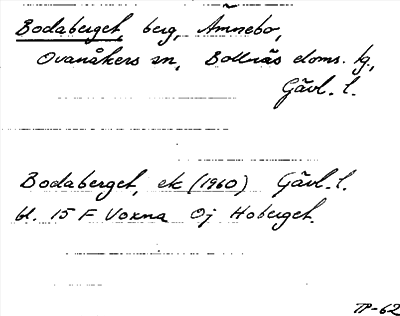 Bodaberget, berg, Åmnebo,
Ovanåkers sn, Bollnäs doms. lg.,
Gävl. l.
Bodaberget, ek (1960) Gävl. l.
bl. 15 F Voxna Oj Hoberget.
TP-62